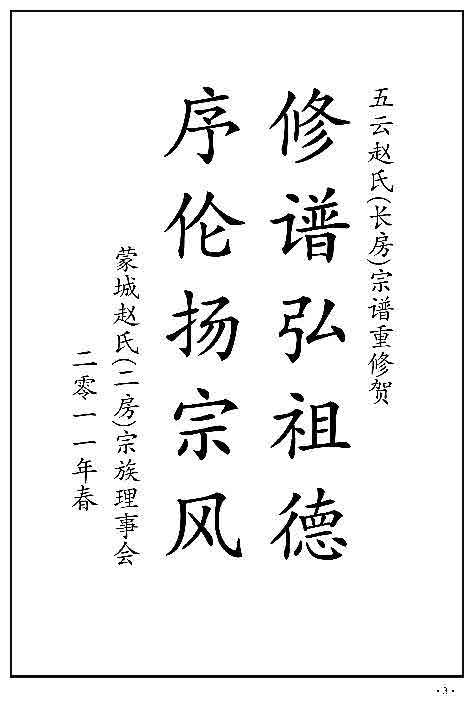 五云赵氏(长房)宗谱重修贺
修谱弘祖德
序伦扬宗风
蒙城赵氏(二房)宗族理事会
二零一一年春
·3·